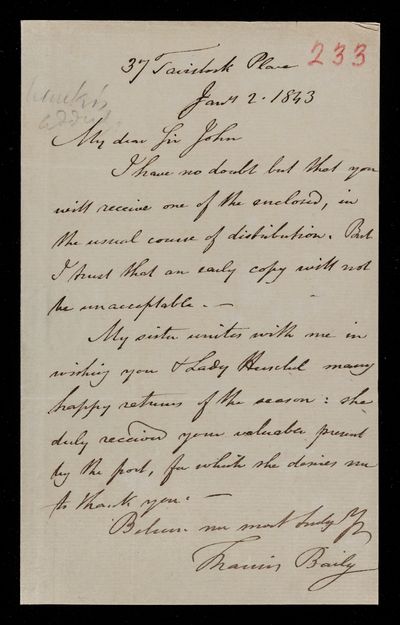 37 Tavistock Place 233
Jany 2. 1843
My dear Sir John
I have no doubt but that you
will receive one of the enclosed, in
the usual course of distribution. But
I trust that an early copy will not
be unacceptable. —
My sister unites with me in
wishing you & Lady Herschel many
happy returns of the season: she
duly received your valuable present
by the post, for which she desires me
to thank you. —
Believe me most truly Yrs
Francis Baily